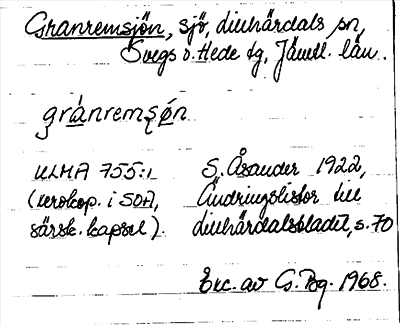 Granremsjön, sjö, Linhärdals sn,
Svegs o. Hede tg, Jämtl. län.
gránremsǫ́n
ULMA 755:1 S. Åsander 1922,
(xerokop. i SOA, Ändringslistor till
särsk. kapsel). Linhärdalsbladet, s. 70
Exc. av G. Pbg. 1968.